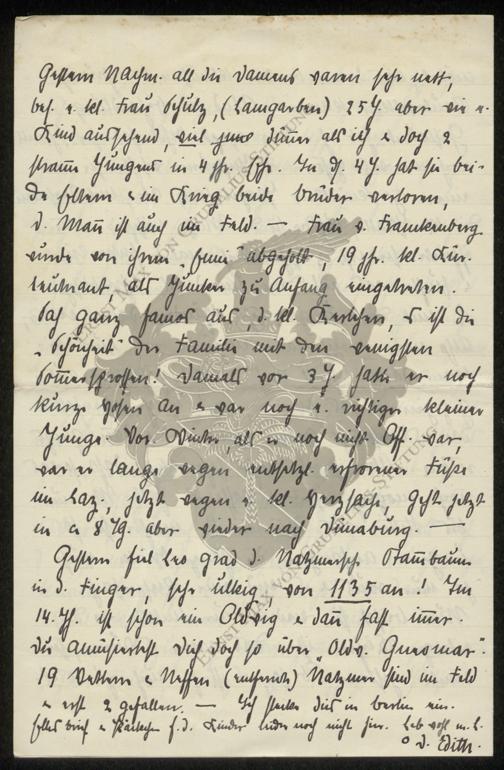 Gestern Nachm. all die Damens waren sehr nett,
bes. e. kl. Frau Schulz, (Lamgarben) 25 J. aber wie e.
Kind aussehend, viel dünner als ich & doch 2
stramme Jungens in 4 jhr. Ehe. In d. 4 J. hat sie bei-
de Eltern & im Krieg beide Brüder verloren,
d. Mann ist auch im Feld. — Frau v. Frankenberg
wurde von ihrem abgeholt, 19 jhr. kl. Kür.
leutnant, als Junker zu Anfang eingetreten.
Sah ganz famos aus, d. kl. Kerlchen, es ist die
"Schönheit" der Familie mit den wenigsten
Sommersprossen! Damals vor 3 J. hatte er noch
kurze Hosen an & war noch e. richtiger kleiner
Junge. Vor. Winter, als er noch nicht Off. war,
war er lange wegen entsetzl. erfrorener Füße
im Laz., jetzt wegen e. kl. Herzsache, geht jetzt
in ca 8 Tg. aber wieder nach Dünaburg. —
Gestern fiel Leo grad d. Natzmersche Stammbaum
in d. Finger, sehr ulkig, von 1135 an! Im
14. Jh. ist schon ein Oldwig & dann fast immer.
Du amüsiertest Dich doch so über "Oldw. Gneomar".
19 Vettern & Neffen (entfernte) Natzmer sind im Feld
& erst 2 gefallen. — Ich stecke dies in Berlin ein.
brief & Päckchen f. d. Kinder leider noch nicht hier. Leb wohl m. l.
D. Edith.
Ernst Max von Grubelius Stiftung